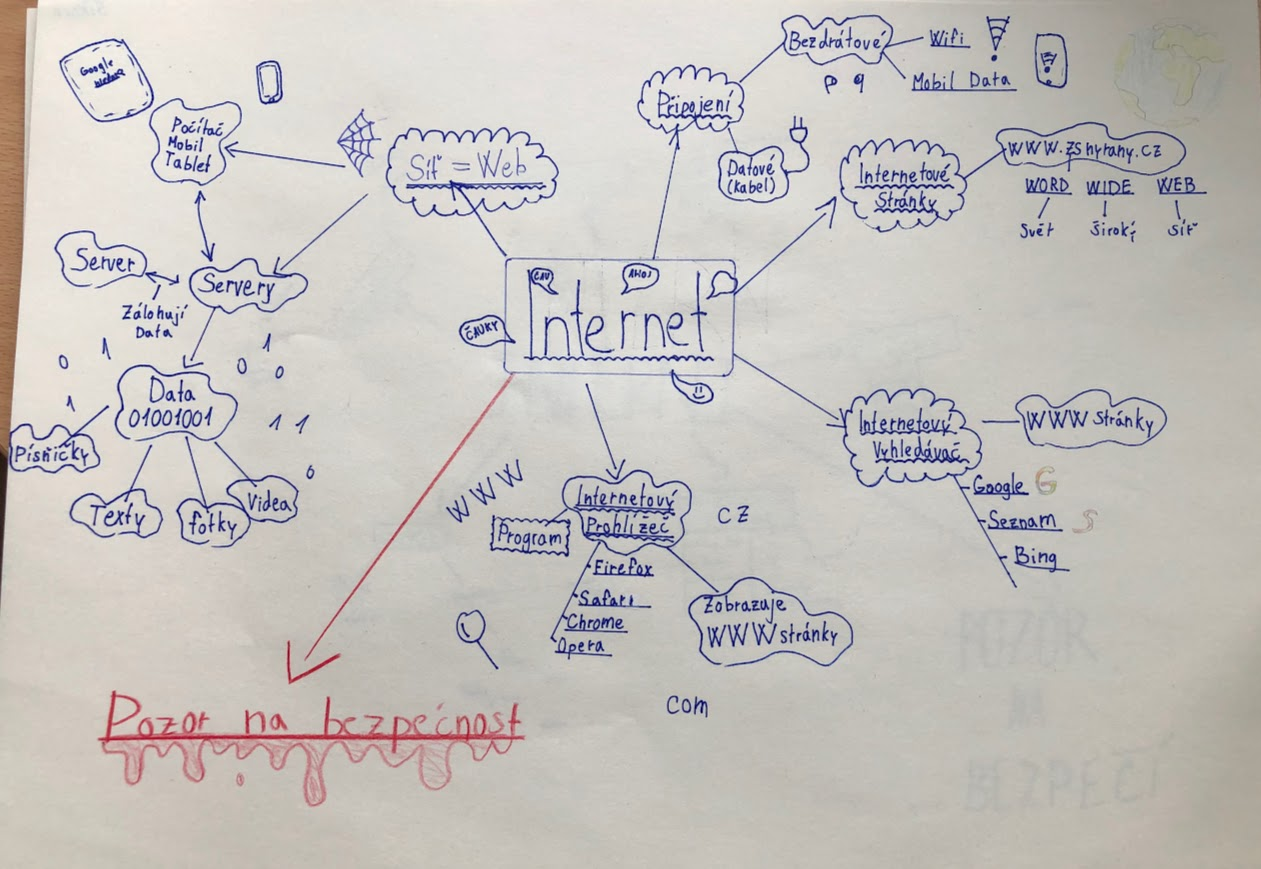 Google
Počítač
Mobil
Tablet
Síť = Web
Připojení
Bezdrátové
Wifi
Mobil Data
Datové
(kabel)
Internetové
Stránky
www.zsnyrany.cz
WORD WIDE WEB
Svět Širokí síť
Server
Servery
Zálohují
Data
Data
01001001
0 1 1 0 0 1 1 1 0
Písňičky
Texty
fotky
Videa
ČAU
AHOJ
ČAUKY
Internet
WWW
Internetový
Prohlížeč
Program
Firefox
Safari
Chrome
Opera
CZ
Zobrazuje
WWW stránky
com
Internetový
Vyhledávač
WWW stránky
Google G
Seznam S
Bing
Pozor na bezpečnost
POZOR
NA
BEZPEČÍ